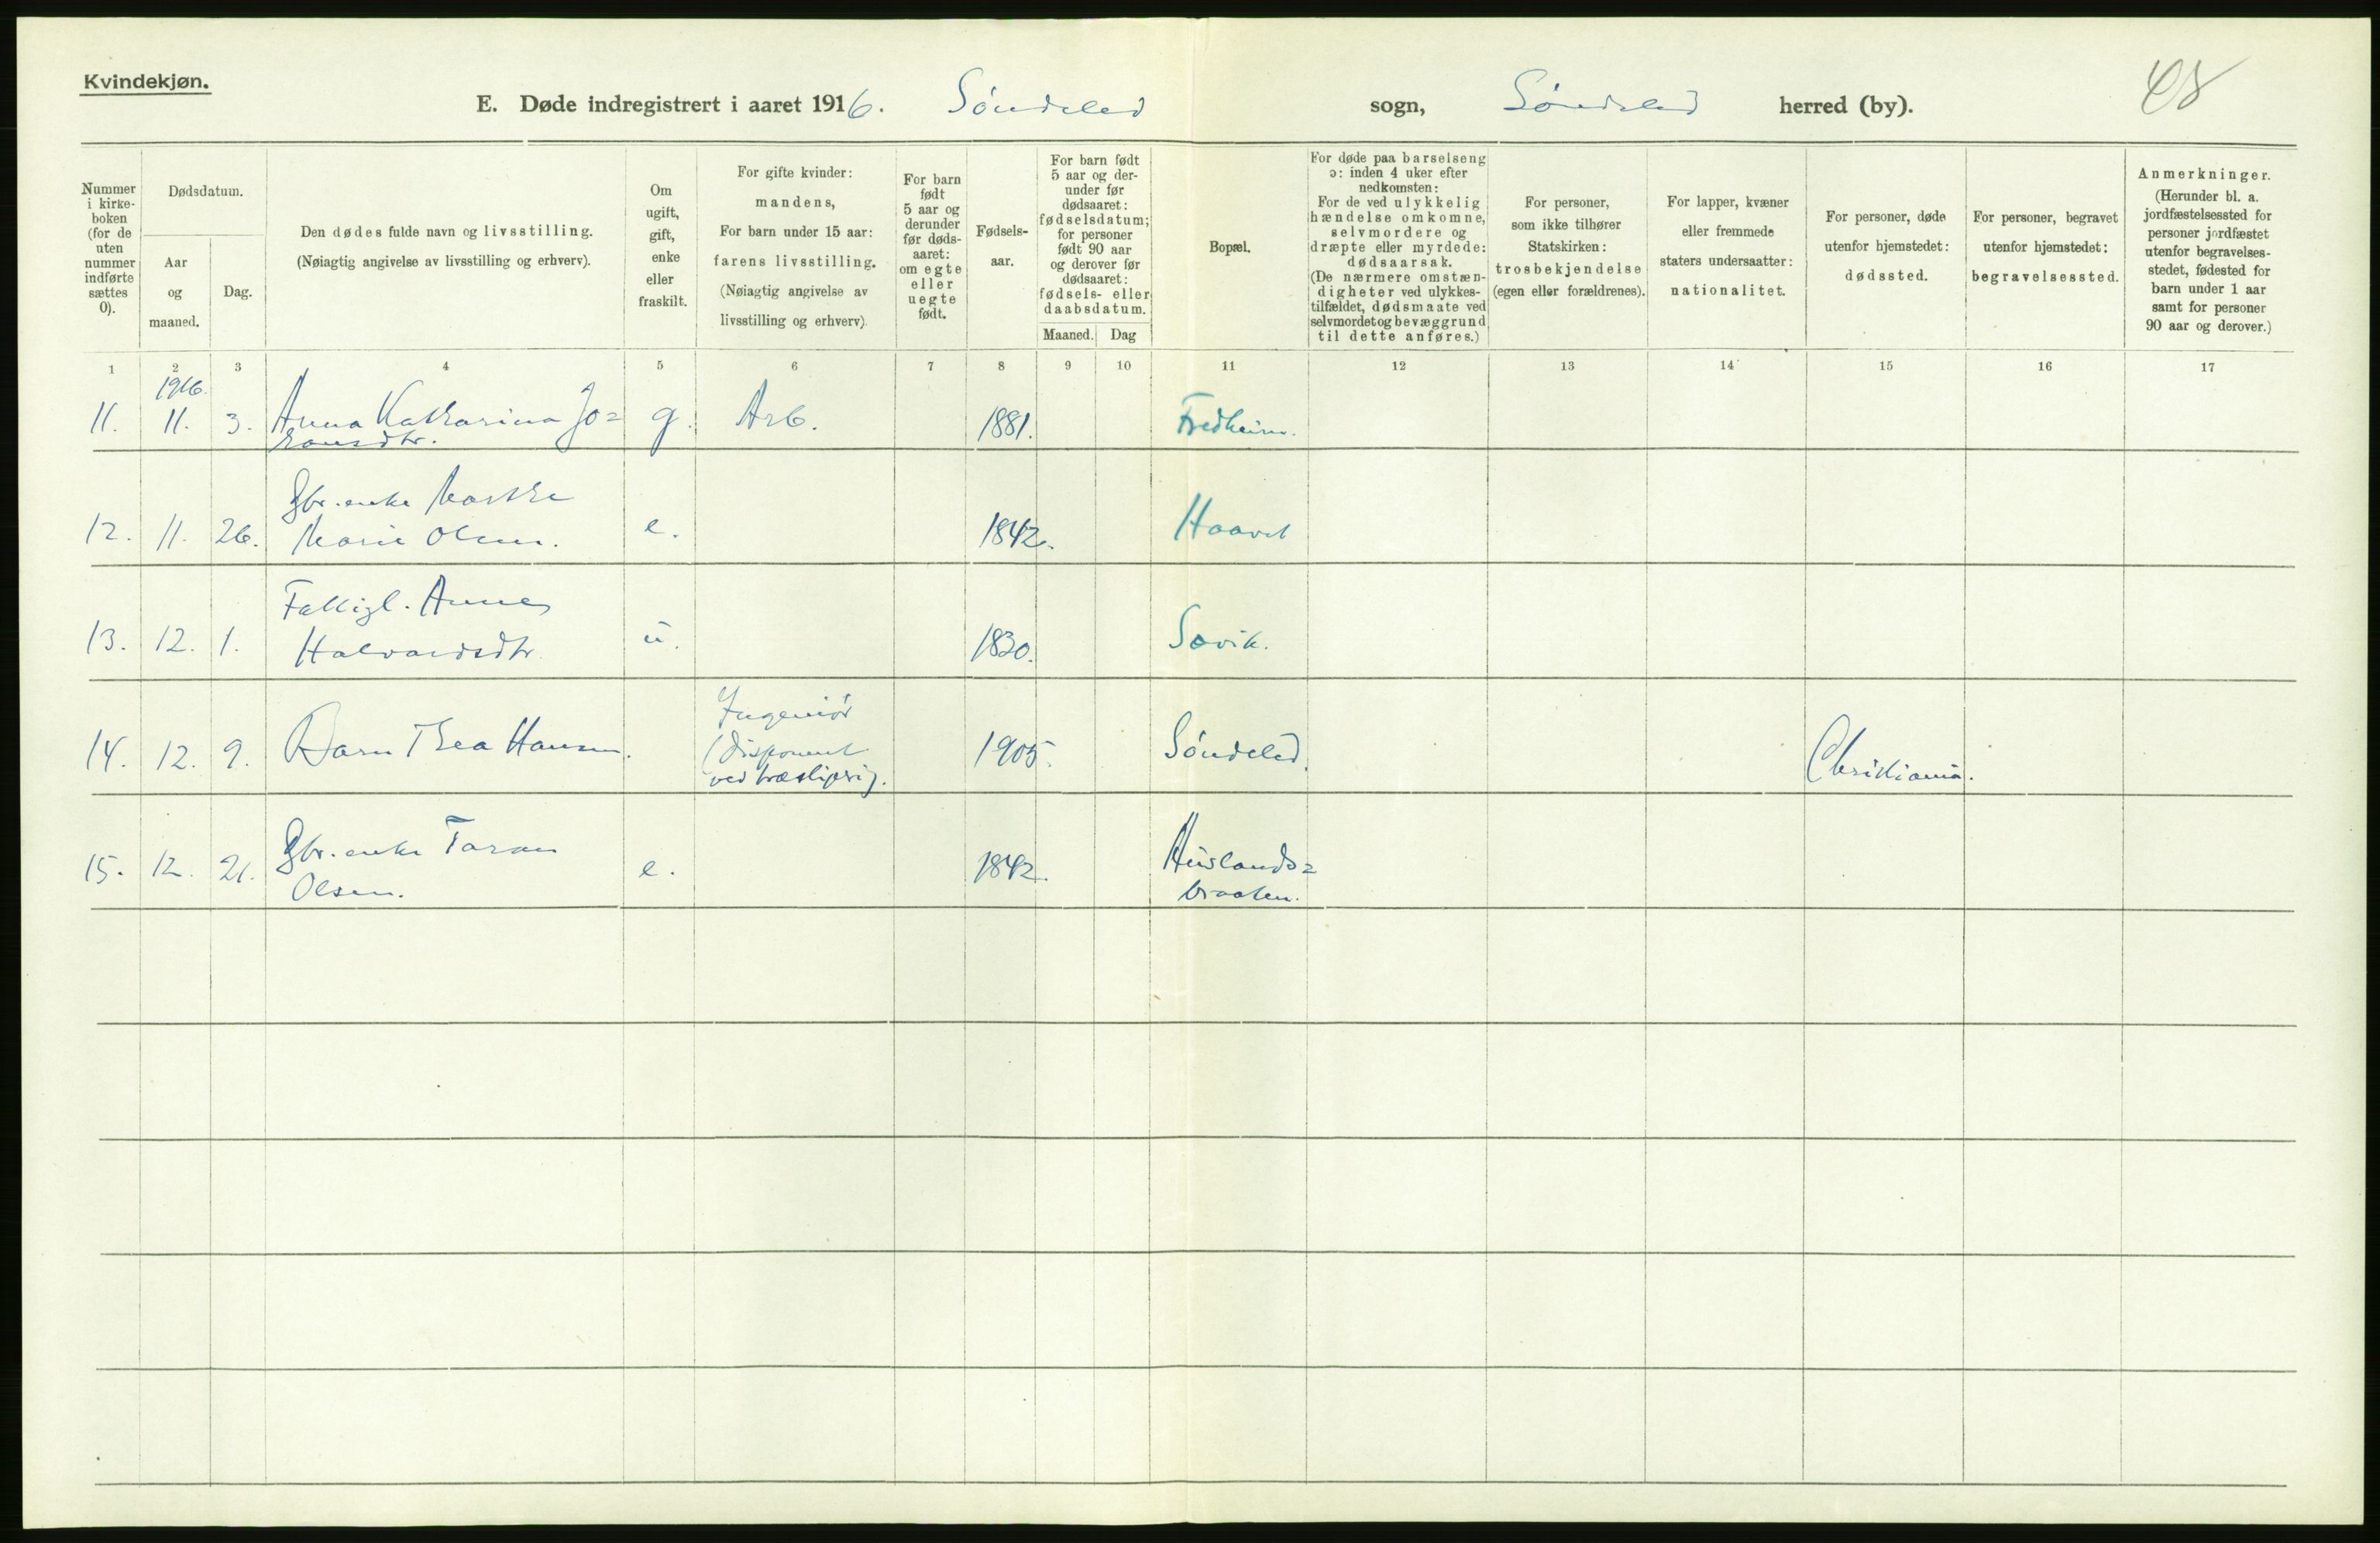 Kvindekjøn.
E. Døde indregistrert i aaret 1916. Søndeled sogn, Søndeled herred (by). 48
Nummer i kirke-boken (for de uten nummer indførte sættes 0).
Dødsdatum.
Aar og maaned.
Dag.
Den dødes fulde navn og livsstilling.
(Nøiagtig angivelse av livsstilling og erhverv).
Om ugift, gift, enke eller fraskilt.
For gifte kvinder:
mandens,
For barn under 15 aar:
farens livsstilling.
(Nøiagtig angivelse av
livsstilling og erhverv)
For barn født 5 aar og derunder før døds-aaret: om egte eller uegte født.
Fødsels-aar.
For barn født 5 aar og der-under før dødsaaret: fødselsdatum; for personer født 90 aar og derover før dødsaaret: fødsels- eller daabsdatum.
Maaned. Dag
Bopæl.
For døde paa barselseng
ɔ: inden 4 uker efter
nedkomsten:
For de ved ulykkelig
hændelse omkomne,
selvmordere og
dræpte eller myrdede:
dødsaarsak.
(De nærmere omstæn-
digheter ved ulykkes-
tilfældet, dødsmaate ved
selvmordet og bevæggrund
til dette anføres.)
For personer,
som ikke tilhører
Statskirken:
trosbekjendelse
(egen eller forældrenes).
For lapper, kvæner
eller fremmede
staters undersaatter:
nationalitet.
For personer, døde
utenfor hjemstedet:
dødssted.
For personer, begravet
utenfor hjemstedet:
begravelsessted.
Anmerkninger.
(Herunder bl. a.
jordfæstelsessted for
personer jordfæstet
utenfor begravelses-
stedet, fødested for
barn under 1 aar
samt for personer
90 aar og derover.)
1 2 3 4 5 6 7 8 9 10 11 12 13 14 15 16 17
1916.
11. 11. 3. Anna Katharina Jo= g. Arb. 1881. Fredheim.
hansdtr.
Gbr. enke Marthe
12. 11. 26. Marie Olsen. e. 1842. Haavet
Fattigl. Anne
13. 12. 1. Halvorsdtr. u. 1830. Sovik.
Ingeniør
14. 12. 9. Barn Thea Hansen. (disponent 1905. Søndeled. Christiania.
ved træsliperi).
15. 12. 21. Gbr. enke Taran e. 1842. Huslands=
Olsen. braaten.